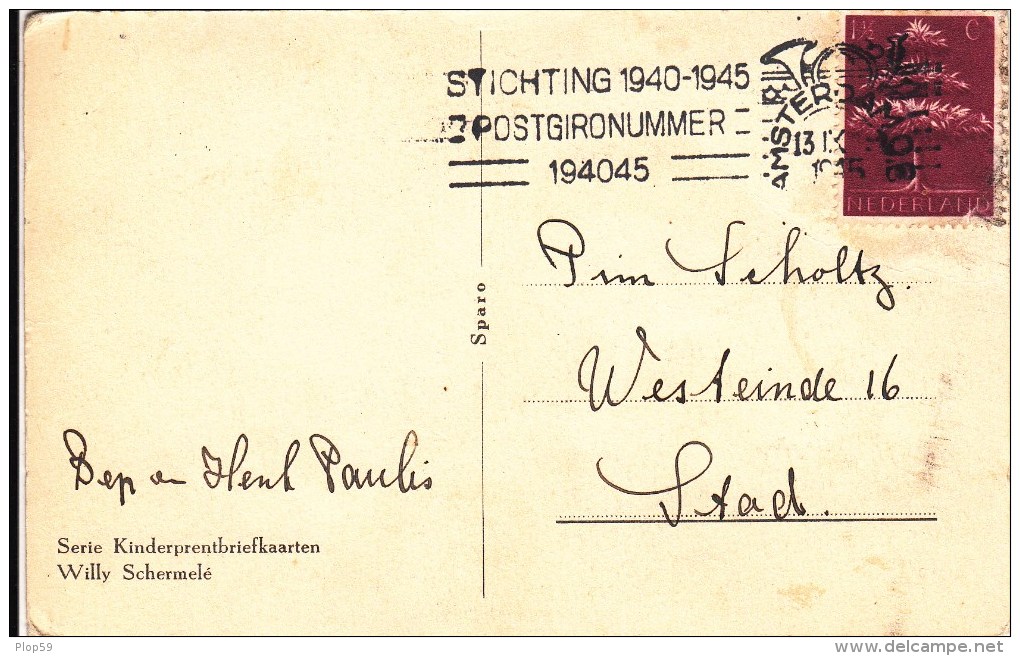 STICHTING 1940-1945
POSTGIRONUMMER
194045
AMSTERDAM
13 IX
1945
1½ C
NEDERLAND
Pim Scholtz.
Westeinde 16
Stad.
Sparo
Bep en Henk Paulis
Serie Kinderprentbriefkaarten
Willy Schermelé
Plop59
www.delcampe.net